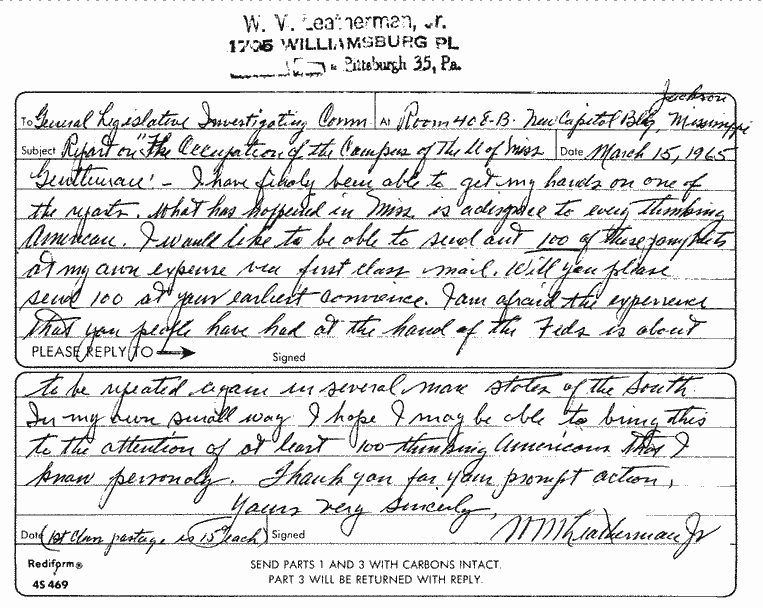 W. V. Leatherman, Jr.
1705 WILLIAMSBURG PL
Pittsburgh 35, Pa.
Jackson
To General Legislative Investigating Comm At Room 408-B. New Capitol Bldg, Mississippi
Subject Report on "The Occupation of the Campus of the U of Miss Date March 15, 1965
Gentlemen! - I have finaly been able to get my hands on one of
the reports. What has happened in Miss is a disgrace to every thinking
American. I would like to be able to send out 100 of these pamphlets
at my own expense via first class mail. Will you please
send 100 at your earliest convience. I am afraid the experience
that you people have had at the hand of the Feds is about
PLEASE REPLY TO → Signed
to be repeated again in several more states of the South.
In my own small way I hope I may be able to bring this
to the attention of at least 100 thinking Americans that I
know personaly. Thank you for your prompt action,
Yours very sincerely,
Date (1st Class postage is 15¢ each) Signed WM Leatherman Jr
Rediform®
4S 469
SEND PARTS 1 AND 3 WITH CARBONS INTACT.
PART 3 WILL BE RETURNED WITH REPLY.